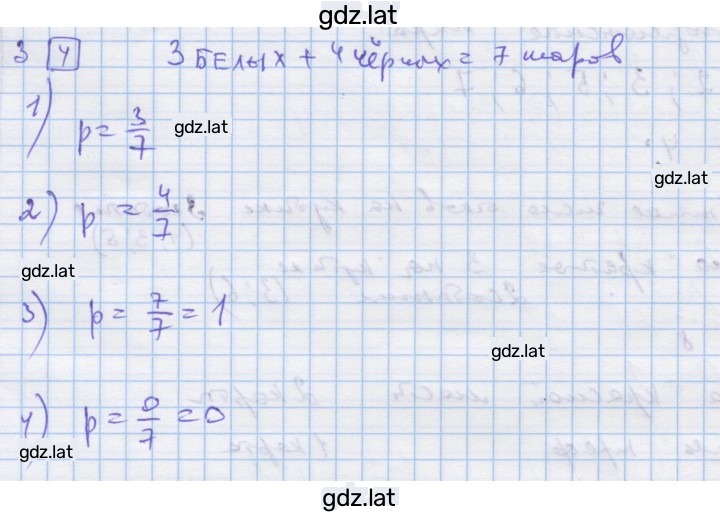 gdz.lat
3 4 3 БЕЛЫХ + 4 чёрных = 7 шаров
1) p = 3/7
gdz.lat
gdz.lat
2) p = 4/7
gdz.lat
3) p = 7/7 = 1
gdz.lat
4) p = 0/7 = 0
gdz.lat
gdz.lat